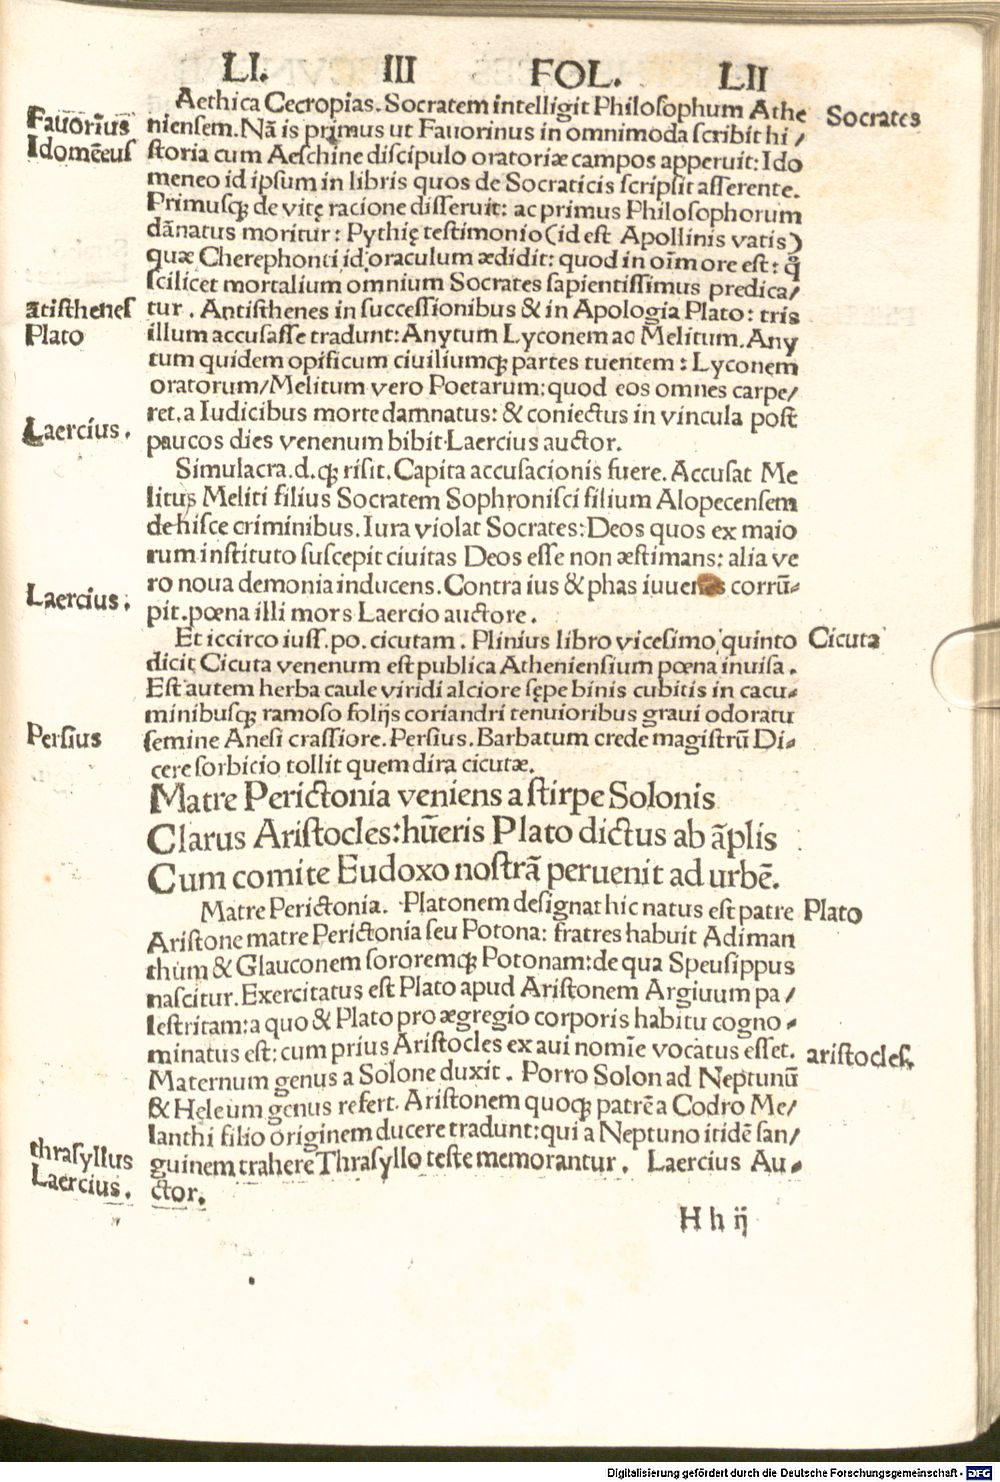 LI. III FOL. LII
Aethica Cecropias. Socratem intelligit Philosophum Athe
Socrates
Fauorīus
niensem. Nā is primus ut Fauorinus in omnimoda scribit hi/
Idomēeus
storia cum Aeschine discipulo oratoriæ campos apperuit: Ido
meneo id ipsum in libris quos de Socraticis scripsit asserente.
Primusqꝫ de vitę racione disseruit: ac primus Philosophorum
dānatus moritur: Pythię testimonio (id est Apollinis vatis)
quæ Cherephonti id oraculum ædidit: quod in oīm ore est: ꝙ
scilicet mortalium omnium Socrates sapientissimus predica/
ātisthenes
tur. Antisthenes in successionibus & in Apologia Plato: tris
Plato
illum accusasse tradunt: Anytum Lyconem ac Melitum. Any
tum quidem opificum ciuiliumqꝫ partes tuentem: Lyconem
oratorum/ Melitum vero Poetarum: quod eos omnes carpe/
ret. a Iudicibus morte damnatus: & coniectus in vincula post
Laercius.
paucos dies venenum bibit. Laercius auctor.
Simulacra. d. qꝫ risit. Capita accusacionis fuere. Accusat Me
litus Meliti filius Socratem Sophronisci filium Alopecensem
de hisce criminibus. Iura violat Socrates: Deos quos ex maio
rum instituto suscepit ciuitas Deos esse non æstimans: alia ve
ro noua demonia inducens. Contra ius & phas iuuenes corrū-
Laercius.
pit. pœna illi mors Laercio auctore.
Et iccirco iuss. po. cicutam. Plinius libro vicesimo quinto
Cicuta
dicit Cicuta venenum est publica Atheniensium pœna inuisa.
Est autem herba caule viridi alciore sępe binis cubitis in cacu-
minibusqꝫ ramoso folijs coriandri tenuioribus graui odoratu
Persius
semine Anesi crassiore. Persius. Barbatum crede magistrū Di-
cere sorbicio tollit quem dira cicutæ.
Matre Perictonia veniens a stirpe Solonis
Clarus Aristocles: hūeris Plato dictus ab āplis
Cum comite Eudoxo nostrā peruenit ad urbē.
Matre Perictonia. Platonem designat hic natus est patre
Plato
Aristone matre Perictonia seu Potona: fratres habuit Adiman
thum & Glauconem sororemqꝫ Potonam: de qua Speusippus
nascitur. Exercitatus est Plato apud Aristonem Argiuum pa/
lestritam: a quo & Plato pro ægregio corporis habitu cogno-
minatus est: cum prius Aristocles ex aui nomīe vocatus esset.
aristocles.
Maternum genus a Solone duxit. Porro Solon ad Neptunū
& Heleum genus refert. Aristonem quoqꝫ patrē a Codro Me/
lanthi filio originem ducere tradunt: qui a Neptuno itidē san/
thrasyllus
guinem trahere Thrasyllo teste memorantur. Laercius Au-
Laercius.
ctor.
H h ij
Digitalisierung gefördert durch die Deutsche Forschungsgemeinschaft - DFG